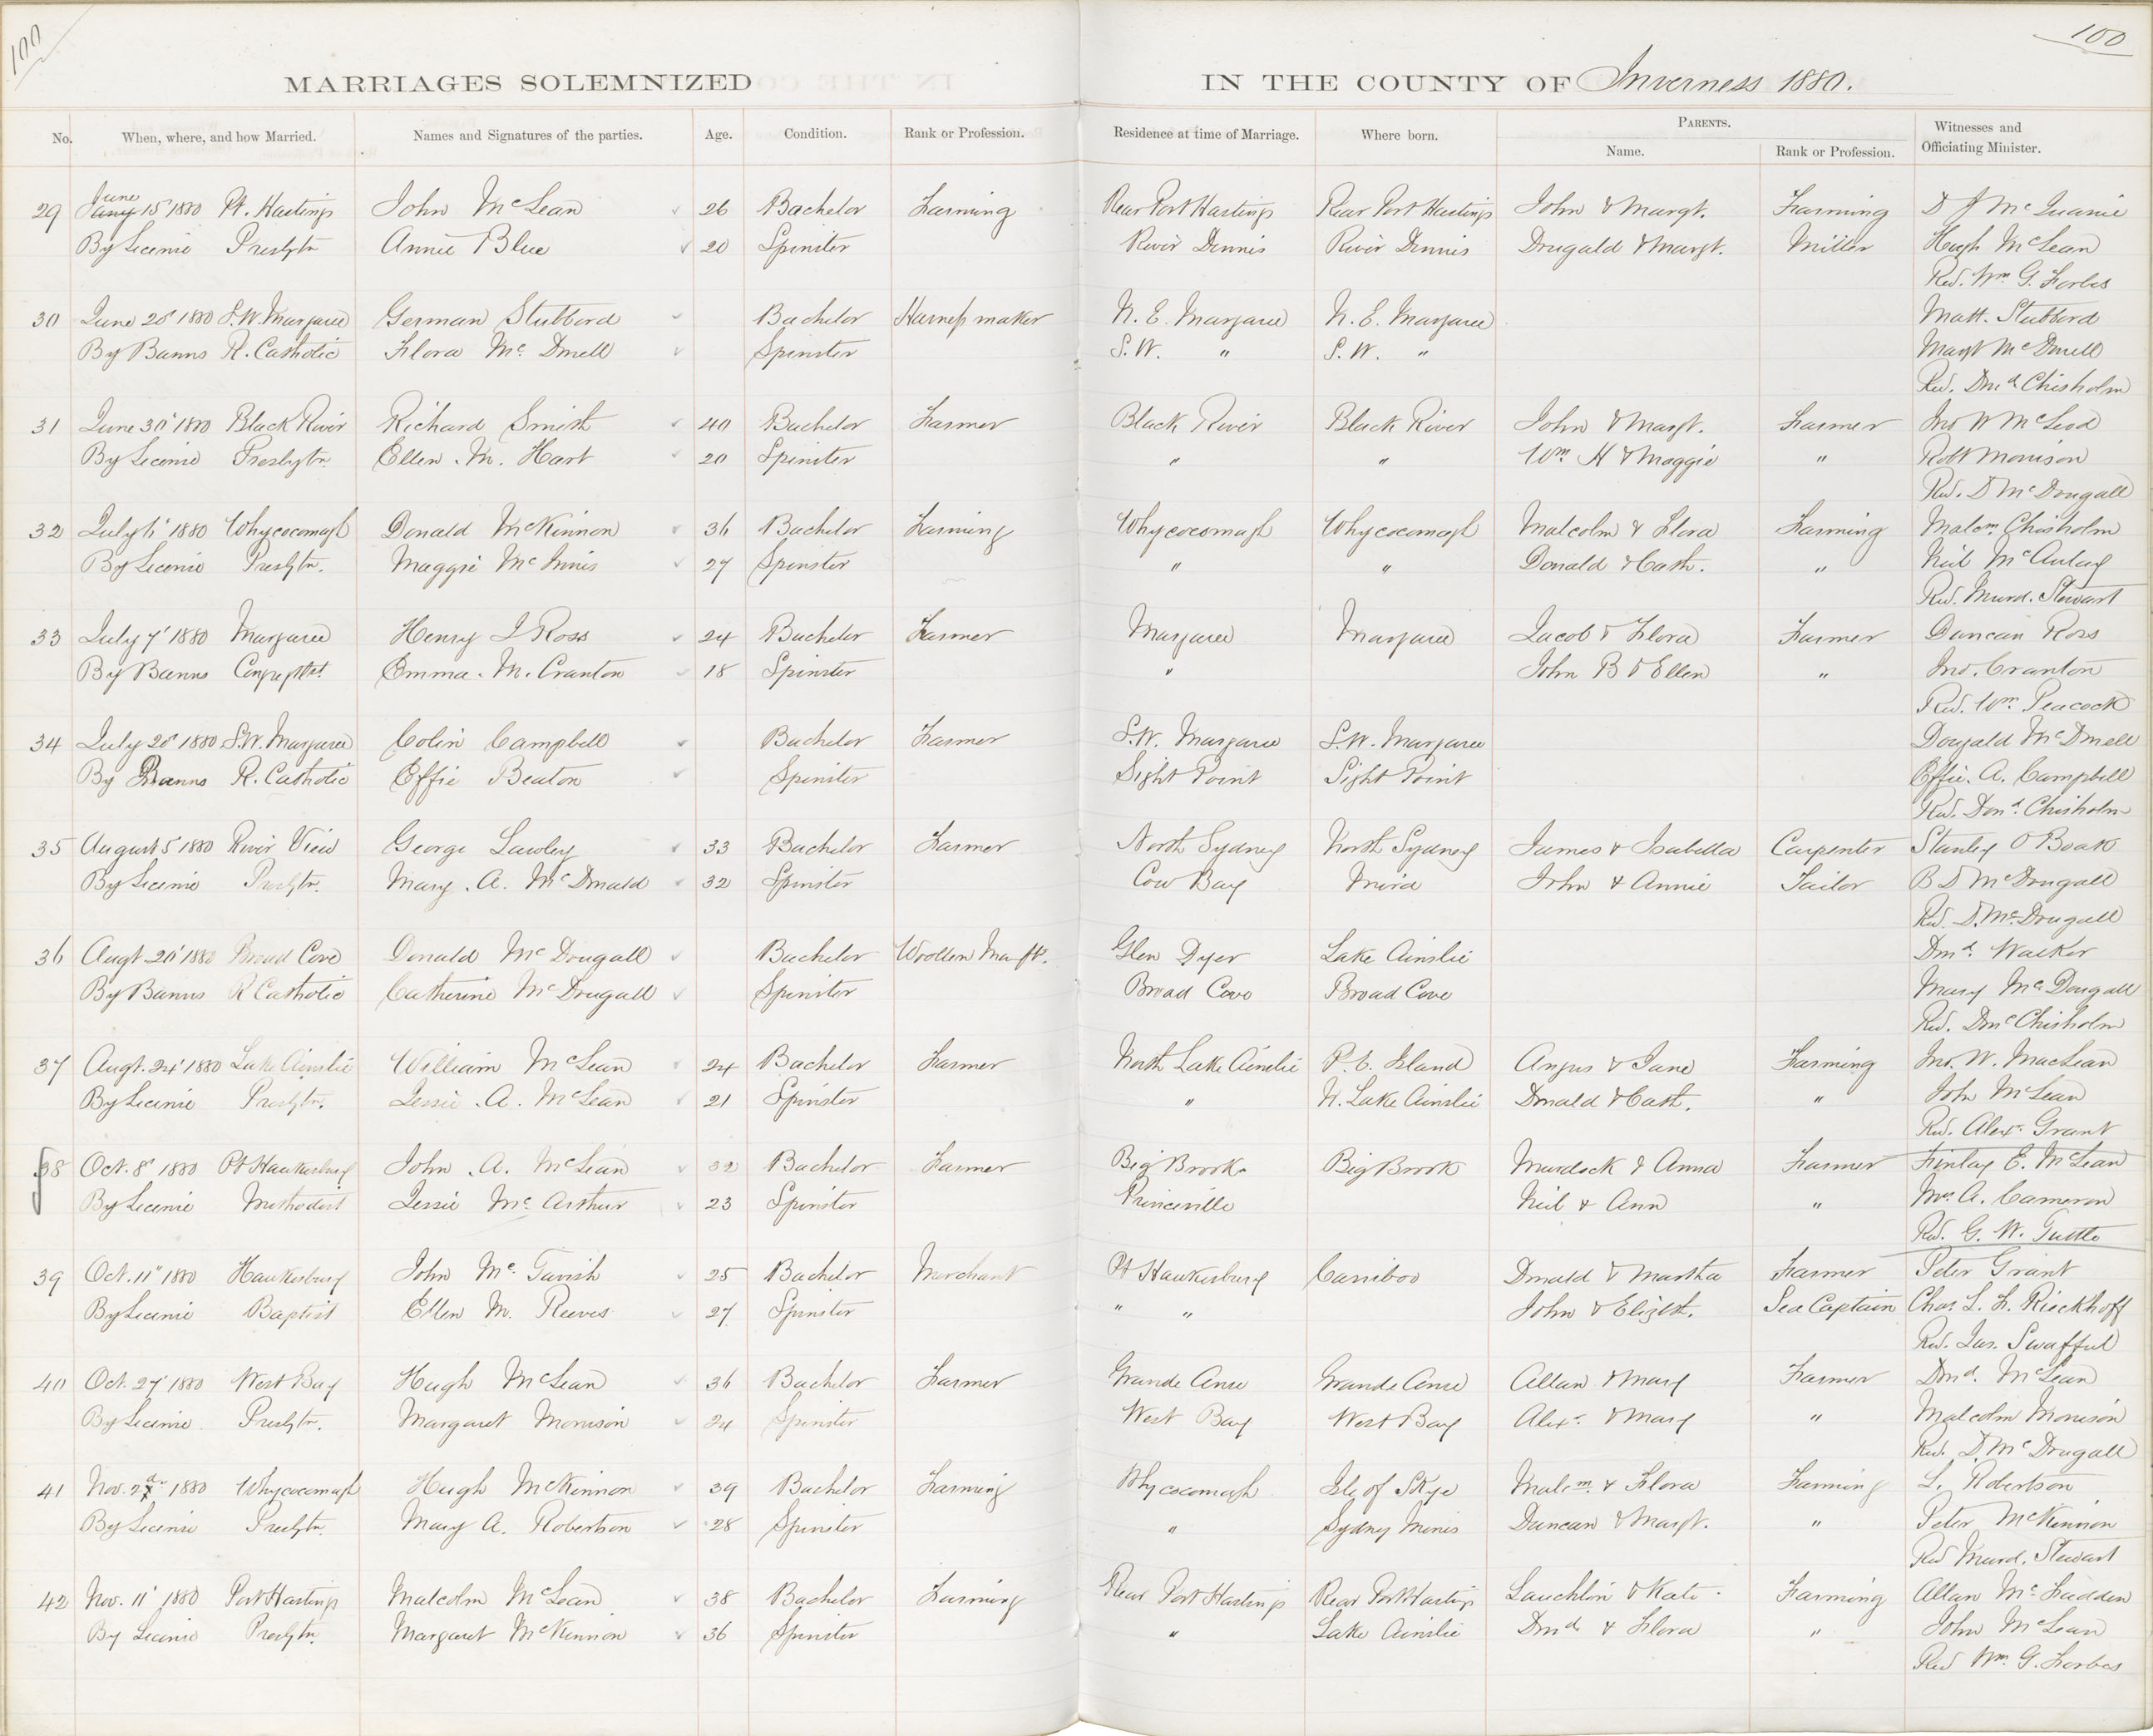 100
100
MARRIAGES SOLEMNIZED IN THE COUNTY OF Inverness 1880.
No. When, where, and how Married. Names and Signatures of the parties. Age. Condition. Rank or Profession. Residence at time of Marriage. Where born. PARENTS. Name. Rank or Profession. Witnesses and Officiating Minister.
29 June 15 1880 Pt. Hastings John McLean 26 Bachelor Farming Rear Port Hastings Rear Port Hastings John & Margt. Farming D J McQuarrie
By Licence Presbytn Annie Blue 20 Spinster River Dennis River Dennis Dougald & Margt. Miller Hugh McLean
Rev. Wm G. Forbes
30 June 28' 1880 S.W. Margaree German Stubbord Bachelor Harness maker N. E. Margaree N. E. Margaree Matt. Stubbord
By Banns R. Catholic Flora Mc Donell Spinster S. W. " S. W. " Margt McDonell
Rev. Dond Chisholm
31 June 30' 1880 Black River Richard Smith 40 Bachelor Farmer Black River Black River John & Margt. Farmer Jno W McLeod
By Licence Presbytn Ellen . M. Hart 20 Spinster " " Wm H & Maggie " Robt Morrison
Rev. D McDougall
32 July 6' 1880 Whycocomagh Donald McKinnon 36 Bachelor Farming Whycocomagh Whycocomagh Malcolm & Flora Farming Malcm Chisholm
By Licence Presbytn. Maggie McInnis 27 Spinster " " Donald & Cath. " Neil McAulay
Rev. Murd. Stewart
33 July 7' 1880 Margaree Henry I Ross 24 Bachelor Farmer Margaree Margaree Jacob & Flora Farmer Duncan Ross
By Banns Emma . M. Cranton 18 Spinster " John B & Ellen " Jno. Cranton
Rev. Wm. Peacock
34 July 20' 1880 S.W. Margaree Colin Campbell Bachelor Farmer S.W. Margaree S.W. Margaree Dougald McDonell
By Banns R. Catholic Effie Beaton Spinster Sight Point Sight Point Effie. A. Campbell
Rev. Dond. Chisholm
35 August 5' 1880 River View George Lawley 33 Bachelor Farmer North Sydney North Sydney James & Isabella Carpenter Stanley O Boak
By Licence Presbytn. Mary . A. McDonald 32 Spinster Cow Bay Mira John & Annie Tailor B D McDougall
Rev. D. McDougall
36 Augt 20' 1880 Broad Cove Donald McDougall Bachelor Woollen Manftr. Glen Dyer Lake Ainslie Dond. Walker
By Banns R Catholic Catherine McDougall Spinster Broad Cove Broad Cove Mary McDougall
Rev. Dond Chisholm
37 Augt. 24' 1880 Lake Ainslie William McLean 24 Bachelor Farmer North Lake Ainslie P. E. Island Angus & Jane Farming Jno. W. MacLean
By Licence Presbytn. Jessie . A. McLean 21 Spinster " N. Lake Ainslie Donald & Cath. " John McLean
Rev. Alexr. Grant
38 Oct. 8' 1880 Pt Hawkesbury John . A. McLean 32 Bachelor Farmer Big Brook Big Brook Murdock & Anna Farmer Finlay E. McLean
By Licence Methodist Jessie McArthur 23 Spinster Princeville Neil & Ann " Mrs A. Cameron
Rev. G. W. Tuttle
39 Oct. 11" 1880 Hawkesbury John McTavish 25 Bachelor Merchant Pt Hawkesbury Cariboo Donald & Martha Farmer Peter Grant
By Licence Baptist Ellen M. Reeves 27 Spinster " " John & Elizbt. Sea Captain Chas L. F. Rieckhoff
Rev. Jas. Swafful
40 Oct. 27' 1880 West Bay Hugh McLean 36 Bachelor Farmer Grande Anse Grande Anse Allan & Mary Farmer Dond. McLean
By Licence Presbytn. Margaret Morrison 24 Spinster West Bay West Bay Alexr. & Mary " Malcolm Morrison
Rev. D. McDougall
41 Nov. 2d 1880 Whycocomagh Hugh McKinnon 39 Bachelor Farming Whycocomagh Isle of Skye Malcm. & Flora Farming L. Robertson
By Licence Presbytn. Mary A. Robertson 28 Spinster " Sydney Mines Duncan & Margt. " Peter McKinnon
Rev Murd. Stewart
42 Nov. 11' 1880 Port Hastings Malcolm McLean 38 Bachelor Farming Rear Port Hastings Rear Port Hastings Lauchlin & Kate Farming Allan McFadden
By Licence Presbytn. Margaret McKinnon 36 Spinster " Lake Ainslie Dond & Flora " John McLean
Rev Wm. G. Forbes